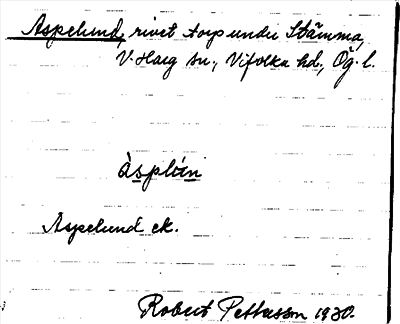 Aspelund, rivet torp under Stämma,
V. Harg sn., Vifolka hd., Ög. l.
àsplún
Aspelund ek.
Robert Pettersson 1930.